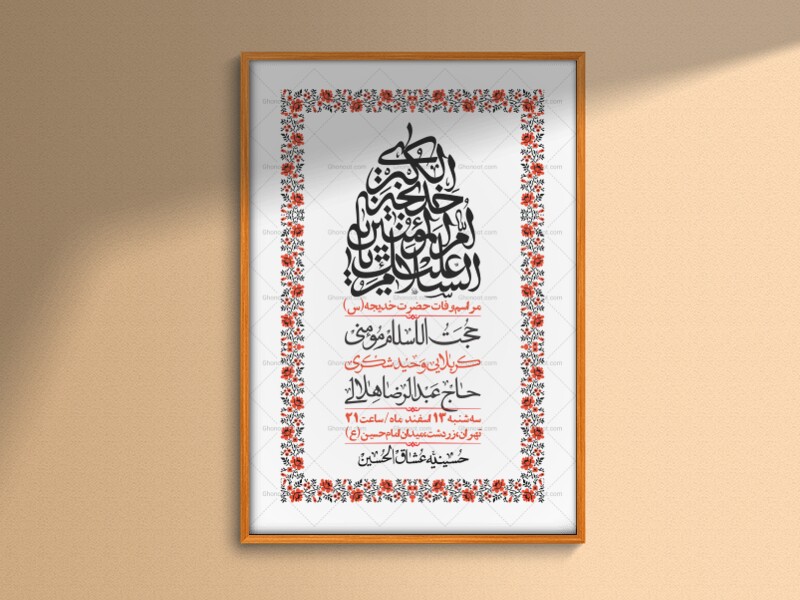 السلام علیک یا
ام المؤمنین
خدیجة
الکبری
مراسم وفات حضرت خدیجه (س)
حجت الاسلام مومنی
کربلایی وحید شکری
حاج عبدالرضا هلالی
سه شنبه ۱۳ اسفند ماه / ساعت ۲۱
تهران، زردشت، میدان امام حسین (ع)
حسینیه عشاق الحسین
Ghonoot.com